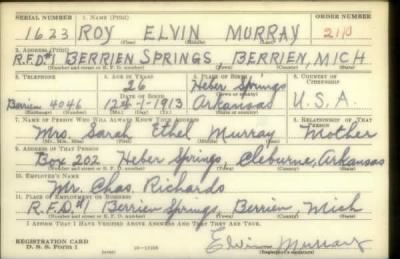 SERIAL NUMBER 1. NAME (Print) ORDER NUMBER
1623 ROY ELVIN MURRAY 2110
(First) (Middle) (Last)
2. ADDRESS (Print)
R.F.D#1 BERRIEN SPRINGS, BERRIEN, MICH
(Number and street or R. F. D. number) (Town) (County) (State)
3. TELEPHONE 4. AGE IN YEARS 5. PLACE OF BIRTH 6. COUNTRY OF CITIZENSHIP
26 Heber Springs
DATE OF BIRTH (Town or county)
Berrien 4046 Arkansas U.S.A.
7. NAME OF PERSON WHO WILL ALWAYS KNOW YOUR ADDRESS 8. RELATIONSHIP OF THAT PERSON
Mrs. Sarah Ethel Murray Mother
9. ADDRESS OF THAT PERSON
Box 202 Heber Springs, Cleburne, Arkansas
(Number and street or R. F. D. number) (Town) (County) (State)
10. EMPLOYER'S NAME
Mr. Chas. Richards
11. PLACE OF EMPLOYMENT OR BUSINESS
R.F.D.#1 Berrien Springs, Berrien Mich
(Number and street or R. F. D. number) (Town) (County) (State)
I AFFIRM THAT I HAVE VERIFIED ABOVE ANSWERS AND THAT THEY ARE TRUE.
REGISTRATION CARD
D. S. S. Form 1 Elvin Murray
(Registrant's signature)